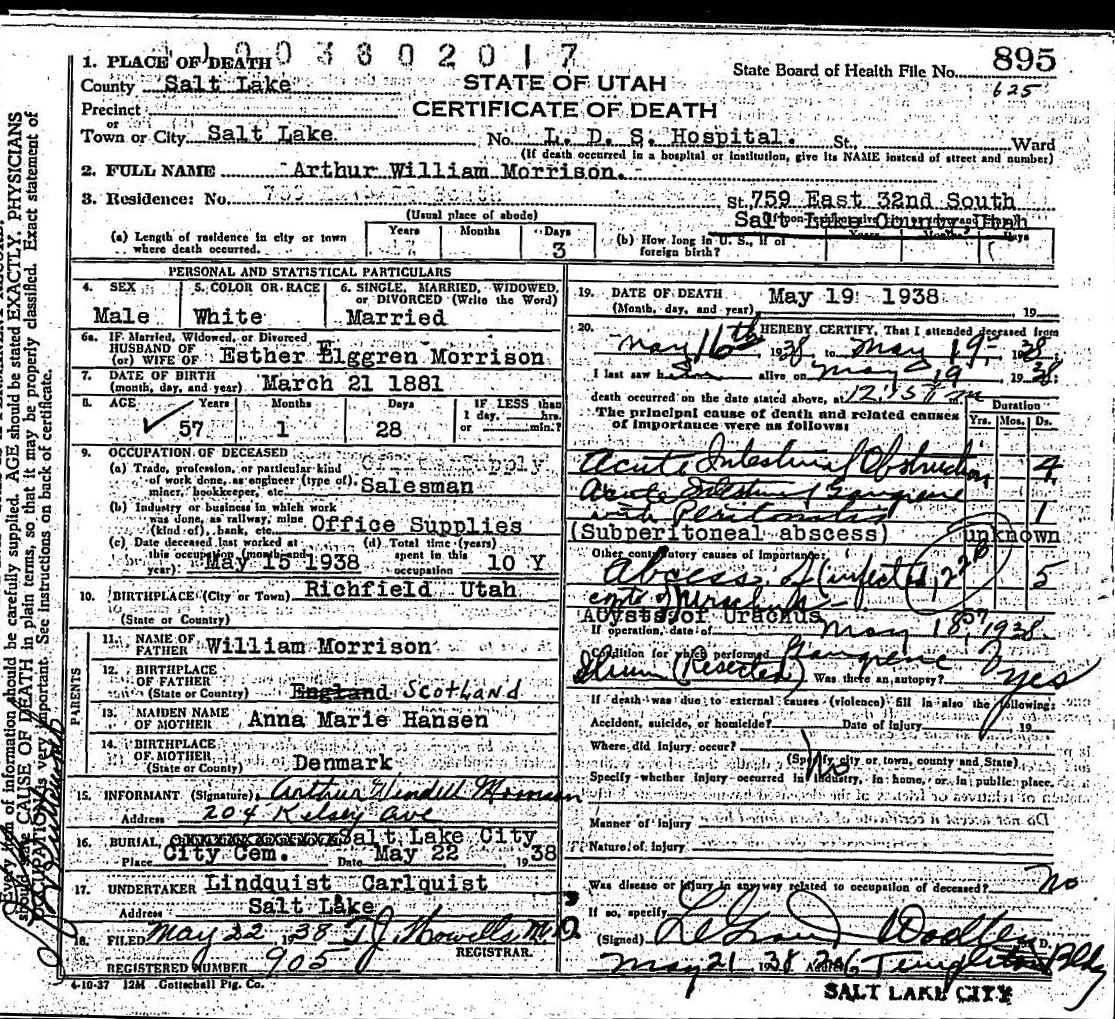 1003802017
895
1. PLACE OF DEATH
STATE OF UTAH
State Board of Health File No.
625
County Salt Lake
CERTIFICATE OF DEATH
Precinct
or
Town or City Salt Lake No. L. D. S. Hospital. St., Ward
(If death occurred in a hospital or institution, give its NAME instead of street and number)
2. FULL NAME Arthur William Morrison.
3. Residence: No. St. 759 East 32nd South
(Usual place of abode) Salt Lake County, Utah
(a) Length of residence in city or town where death occurred. Years Months Days 3
(b) How long in U. S., if of foreign birth? Years Months Days
PERSONAL AND STATISTICAL PARTICULARS
4. SEX 5. COLOR OR RACE 6. SINGLE, MARRIED, WIDOWED, or DIVORCED (Write the Word)
Male White Married
6a. If Married, Widowed, or Divorced
HUSBAND OF
(or) WIFE OF Esther Elggren Morrison
7. DATE OF BIRTH
(month, day, and year) March 21 1881
8. AGE Years Months Days IF LESS than 1 day, hrs. or min.?
57 1 28
9. OCCUPATION OF DECEASED
(a) Trade, profession, or particular kind
of work done, as engineer (type of),
miner, bookkeeper, etc. Salesman
(b) Industry or business in which work
was done, as railway, mine
(kind of), bank, etc. Office Supplies
(c) Date deceased last worked at
this occupation (month and
year): May 15 1938
(d) Total time (years)
spent in this
occupation 10 Y
10. BIRTHPLACE (City or Town) Richfield Utah
(State or Country)
PARENTS
11. NAME OF
FATHER William Morrison
12. BIRTHPLACE
OF FATHER
(State or Country) England Scotland
13. MAIDEN NAME
OF MOTHER Anna Marie Hansen
14. BIRTHPLACE
OF MOTHER
(State or Country) Denmark
15. INFORMANT (Signature) Arthur Wendell Morrison
Address 204 Kelsey Ave
16. BURIAL, Salt Lake City
Place City Cem. Date May 22 1938
17. UNDERTAKER Lindquist Carlquist
Address Salt Lake
18. FILED May 22 1938 T J Howells M.D.
REGISTRAR.
REGISTERED NUMBER 905
4-10-37 12M Gottschall Ptg. Co.
19. DATE OF DEATH May 19 1938
(Month, day, and year) 19
20. I HEREBY CERTIFY, That I attended deceased from
May 16th 1938, to May 19, 1938.
I last saw him alive on May 19, 1938;
death occurred on the date stated above, at 12.15
The principal cause of death and related causes Duration
of importance were as follows: Yrs. Mos. Ds.
Acute Intestinal Obstruction 4
Acute Intestinal Gangrene
with Peritonitis 1
(Subperitoneal abscess) unknown
Other contributory causes of importance:
Abcess of (infected) 5
cysts of urachus
Acysts of Urachus
If operation, date of May 18, 1938
Condition for which performed Gangrene of
Ilium (Resected) Was there an autopsy? yes
If death was due to external causes (violence) fill in also the following:
Accident, suicide, or homicide? Date of Injury 19
Where did injury occur?
(Specify city or town, county and State)
No
Specify whether injury occurred in industry, in home, or in public place.
Manner of injury
Nature of injury
Was disease or injury in any way related to occupation of deceased? No
If so, specify
(Signed) LeGrand Woolley M. D.
May 21 1938 Address Templeton Bldg
SALT LAKE CITY
Every item of information should be carefully supplied. AGE should be stated EXACTLY. PHYSICIANS
should state CAUSE OF DEATH in plain terms, so that it may be properly classified. Exact statement of
OCCUPATION is very important. See instructions on back of certificate.